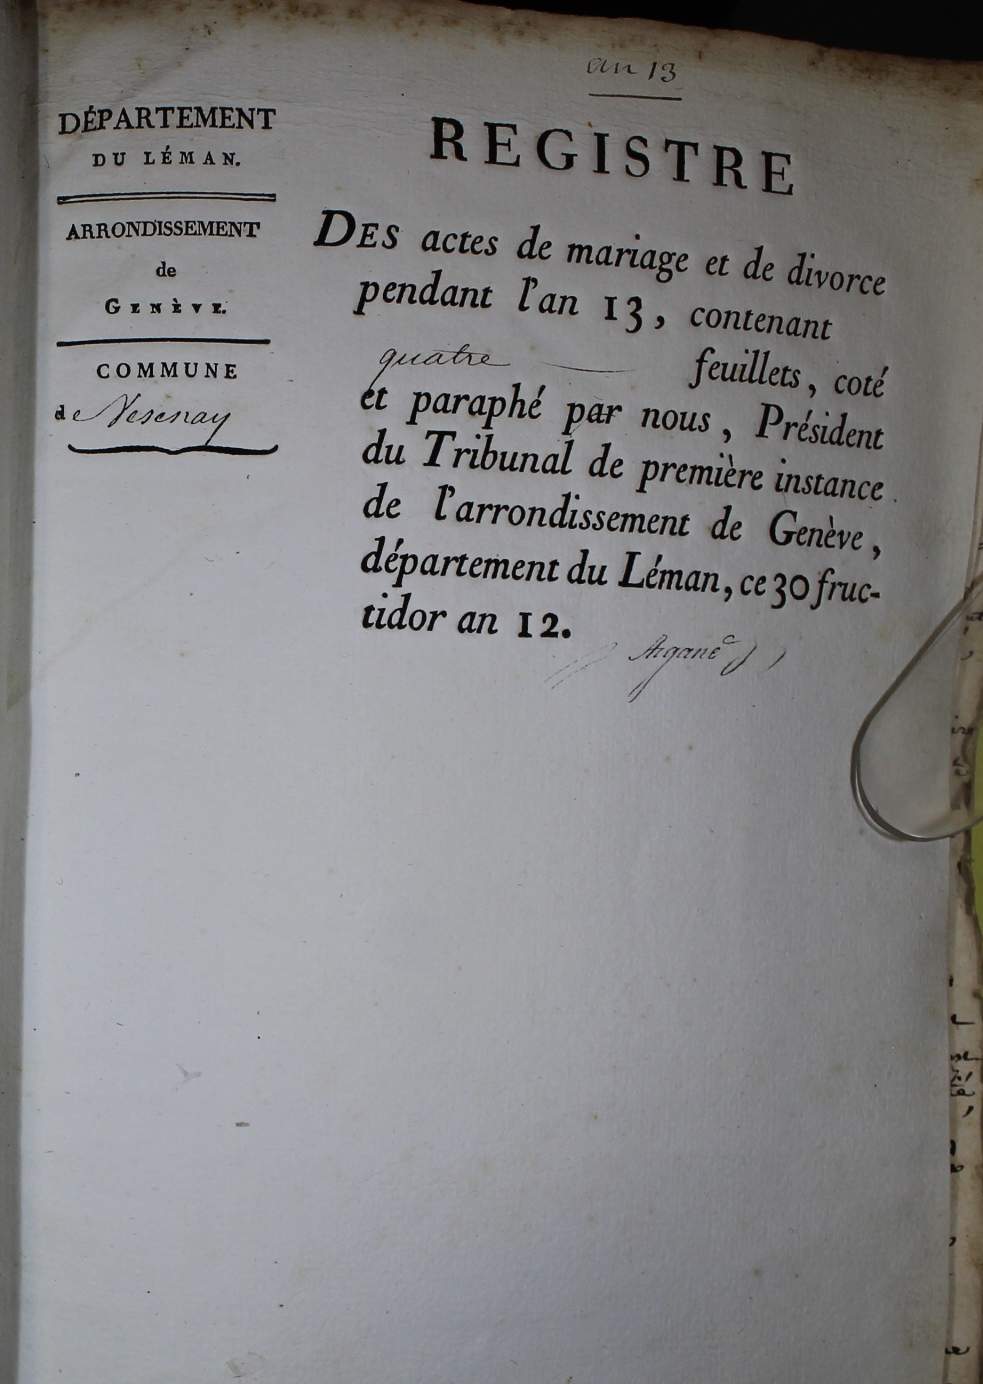 an 13
DÉPARTEMENT
DU LÉMAN.
ARRONDISSEMENT
de
GENÈVE.
COMMUNE
de Vesenay
REGISTRE
DES actes de mariage et de divorce
pendant l'an 13, contenant
quatre feuillets, coté
et paraphé par nous, Président
du Tribunal de première instance
de l'arrondissement de Genève,
département du Léman, ce 30 fruc-
tidor an 12.